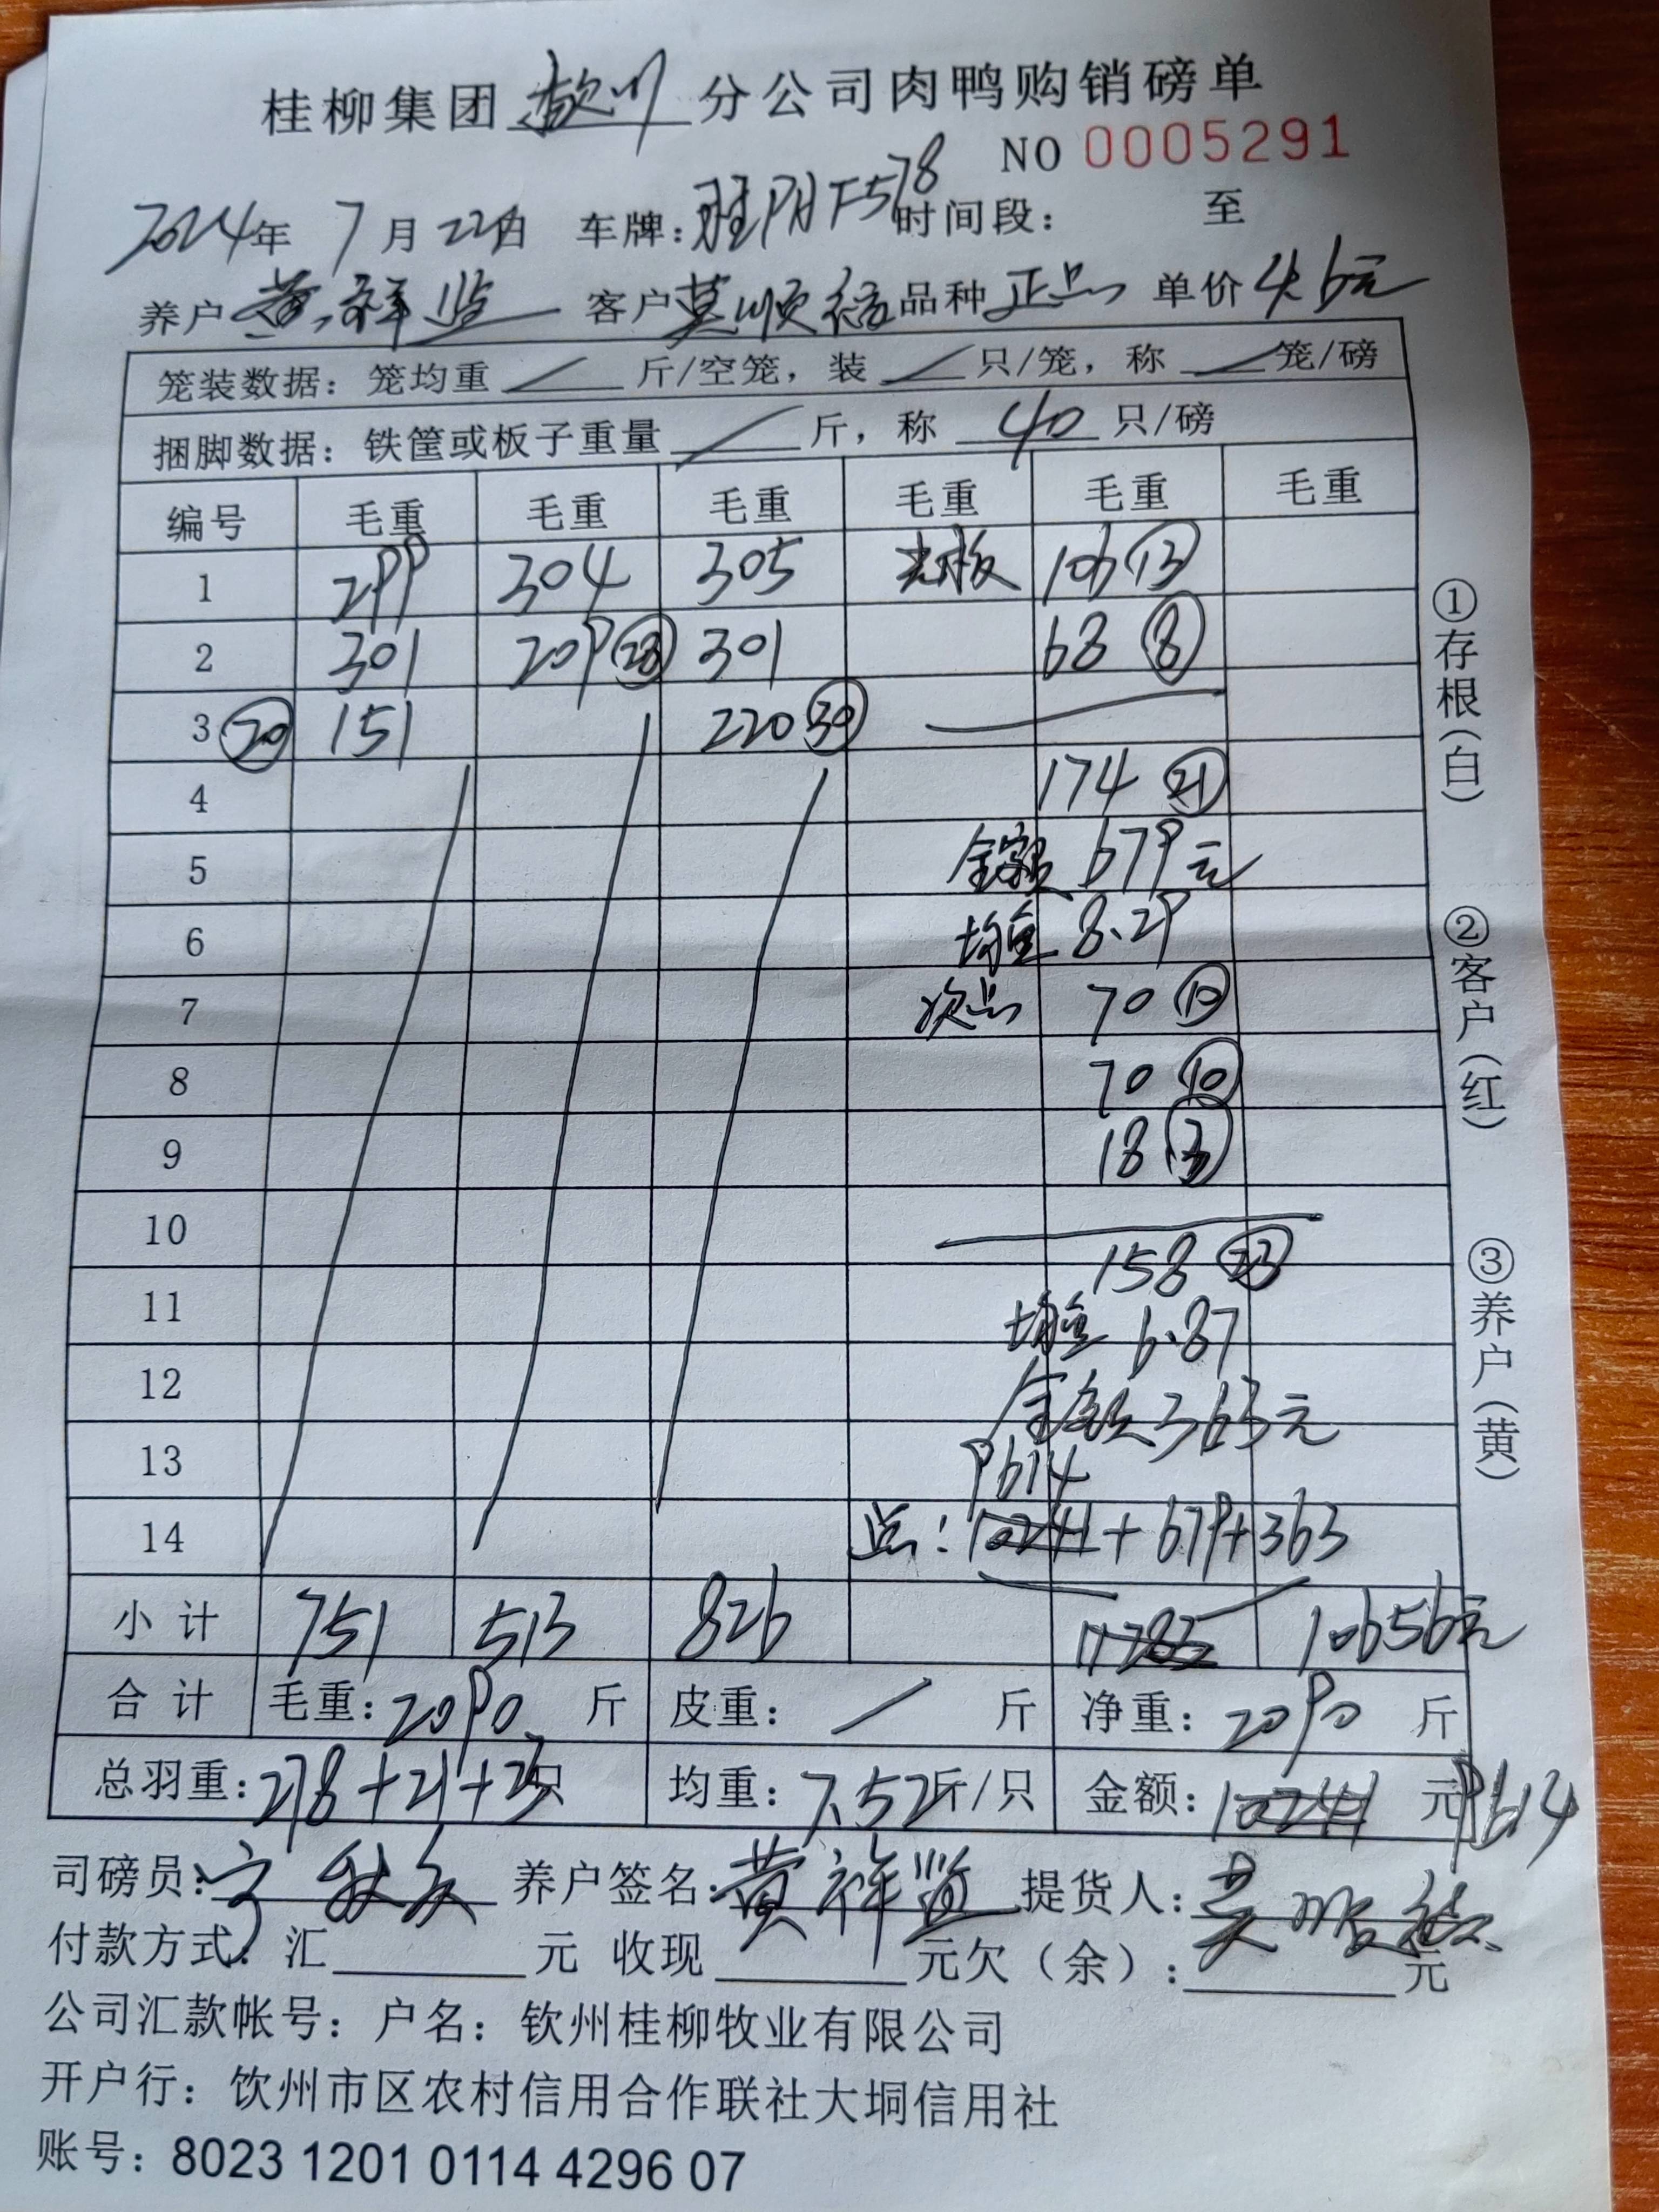 桂柳集团 钦州 分公司肉鸭购销磅单
NO 0005291
2024年 7月 22日 车牌: F578 时间段: 至
养户 黄祥监 客户 莫顺德 品种 正品 单价 4.6元
笼装数据: 笼均重 / 斤/空笼, 装 / 只/笼, 称 / 笼/磅
捆脚数据: 铁筐或板子重量 / 斤, 称 40 只/磅
编号 毛重 毛重 毛重 毛重 毛重 毛重
1 299 304 305 光板 106 ⑬
2 301 209 ㉘ 301 68 ⑧
3 ⑳ 151 220 ㉚
4 174 ㉑
5 金额 679元
6 均重 8.29
7 次品 70 ⑩
8 70 ⑩
9 18 ③
10 158 ㉓
11 均重 6.87
12 金额 363元
13 9614
14 总: 10241 + 679 + 363
小计 751 513 826 10656元
合计 毛重: 2090 斤 皮重: / 斤 净重: 2090 斤
总羽重: 278+21+23只 均重: 7.52斤/只 金额: 10241 元 9614
司磅员: 宁 养户签名: 黄祥监 提货人: 莫顺德
付款方式: 汇 元 收现 元欠(余): 元
公司汇款帐号: 户名: 钦州桂柳牧业有限公司
开户行: 钦州市区农村信用合作联社大垌信用社
账号: 8023 1201 0114 4296 07
①存根(白)
②客户(红)
③养户(黄)